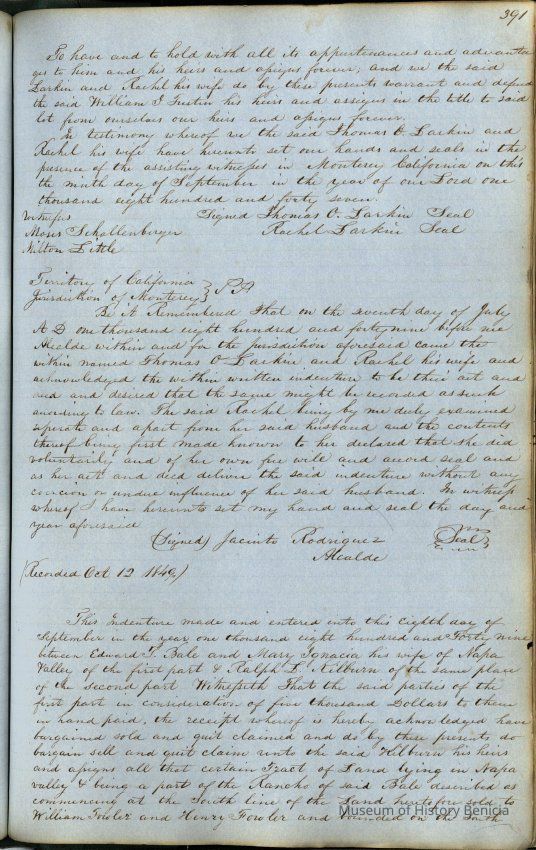 391
To have and to hold with all its appurtenances and advanta
ges to him and his heirs and assigns forever; and we the said
Larkin and Rachel his wife do by these presents warrant and defend
the said William I Tustin his heirs and assigns in the title to said
lot from ourselves our heirs and assigns forever.
In testimony whereof we the said Thomas O. Larkin and
Rachel his wife have hereunto set our hands and seals in the
presence of the assisting witnesses in Monterey California on this
the ninth day of September in the year of our Lord one
thousand eight hundred and forty seven.
Witness Signed Thomas O. Larkin Seal
Moses Schallenberger Rachel Larkin Seal
Milton Little
Territory of California
Jurisdiction of Monterey
Be it Remembered That on the seventh day of July
A D one thousand eight hundred and forty nine before me
Alcalde within and for the jurisdiction aforesaid came the
within named Thomas O Larkin and Rachel his wife and
acknowledged the within written indenture to be their act and
deed and desired that the same might be recorded as such
according to law. The said Rachel being by me duly examined
seperate and apart from her said husband and the contents
thereof being first made known to her declared that she did
voluntarily and of her own free will and accord seal and
as her act and deed deliver the said indenture without any
coercion or undue influence of her said husband. In witness
whereof I have hereunto set my hand and seal the day and
year aforesaid
(Signed) Jacinto Rodriguez Seal
Alcalde
(Recorded Oct 12 1849)
This Indenture made and entered into this Eighth day of
September in the year one thousand eight hundred and Forty nine
between Edward T. Bale and Mary Ignacia his wife of Napa
Valley of the first part & Ralph L. Kilburn of the same place
of the second part Witnesseth That the said parties of the
first part in consideration of five thousand Dollars to them
in hand paid, the receipt whereof is hereby acknowledged have
bargained sold and quit claimed and do by these presents do
bargain sell and quit claim unto the said Kilburn his heirs
and assigns all that certain Tract of Land lying in Napa
valley & being a part of the Rancho of said Bale described as
commencing at the South line of the Land heretofore sold to
William Fowler and Henry Fowler and bounded on the South
Museum of History Benicia